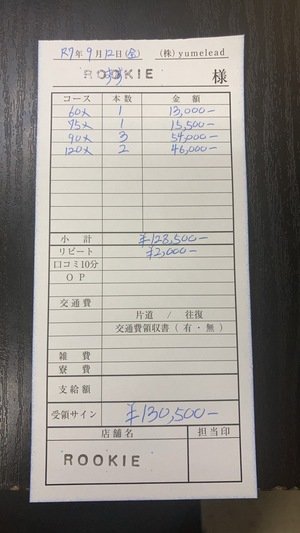 R7年 9月12日(金) (株)yumelead
ROOKIE 様
コース 本数 金額
60大 1 13,000-
75大 1 15,500-
90大 3 54,000-
120大 2 46,000-
小計 ¥128,500-
リピート ¥2,000-
口コミ10分
OP
交通費
片道 / 往復
交通費領収書(有・無)
雑費
寮費
支給額
受領サイン ¥130,500-
店舗名 担当印
ROOKIE